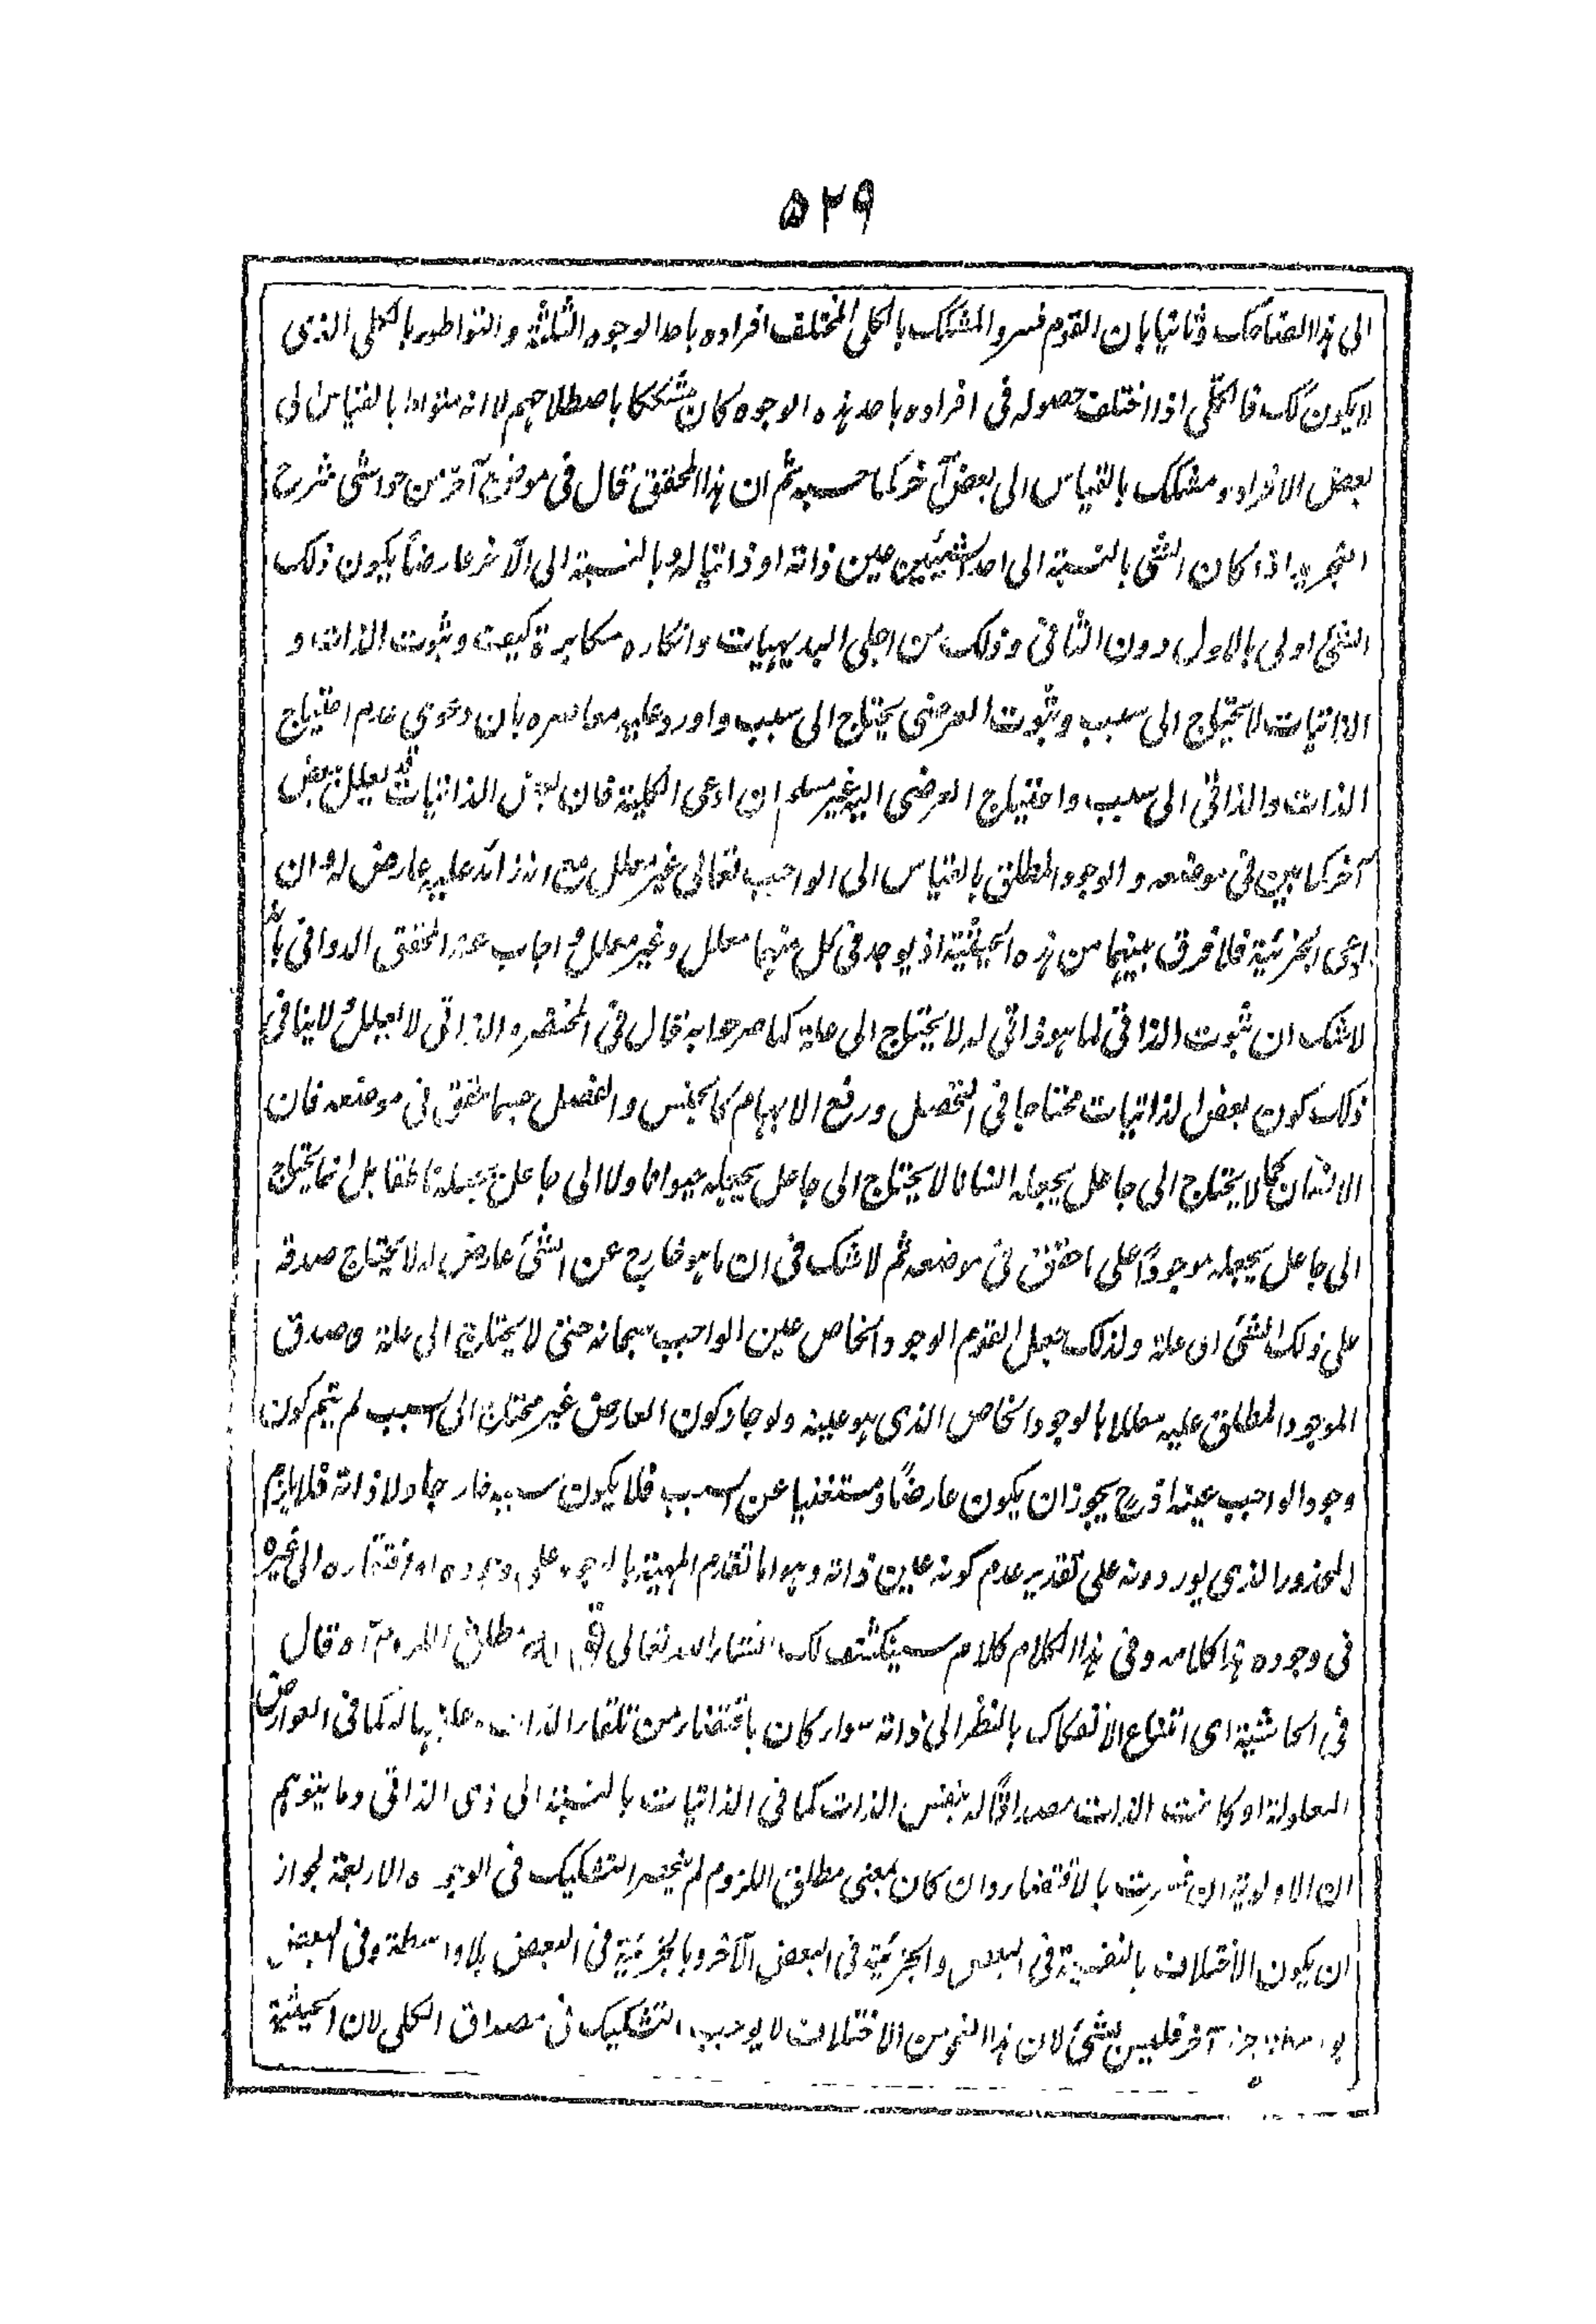 ٥٢٩
الى هذا لصناحك وثانيا بان القوم فسروا المشكك بالكلى المختلف افراده باحد الوجوه الثلثة والمتواطو بالكلى الذى
لا يكون كك فالكلى اذا اختلف حصوله فى افراده باحد هذه الوجوه كان مشككا باصطلاحهم لا انه متواطا بالقياس الى
بعض الافراد و مشكك بالقياس الى بعض آخر كما حسبه ثم ان هذا المحقق قال فى موضع آخر من حواشى شرح
التجريد اذا كان الشئ بالنسبة الى احد الشيئين عين ذاته او ذاتيا له و بالنسبة الى الآخر عارضاً يكون ذلك
الشئ اولى بالاول دون الثانى وذلك من اجلى البديهيات وانكاره مكابرة كيف وثبوت الذات و
الذاتيات لا يحتاج الى سبب وثبوت العرضى يحتاج الى سبب واورد عليه معاصره بان دعوى عدم احتياج
الذات والذاتى الى سبب واحتياج العرضى اليه غير مسلم ان ادعى الكلية فان بعض الذاتيات قد يعلل ببعض
آخر كما بين فى موضعه والوجود المطلق بالقياس الى الواجب تعالى غير معلل مع انه زائد عليه عارض له و ان
ادعى الجزئية فلا فرق بينهما من هذه الحيثية اذ يوجد فى كل منهما معلل وغير معلل و اجاب عنه المحقق الدوانى بانه
لا شك ان ثبوت الذاتى لما هو ذاتى له لا يحتاج الى علة كما صرحوا به قال فى المختصر و الذاتى لا يعلل و لا ينافى
ذلك كون بعض الذاتيات محتاجا فى التحصل ورفع الابهام كالجنس والفصل حسبما حقق فى موضعه فان
الانسان كما لا يحتاج الى جاعل يجعله انسانا لا يحتاج الى جاعل يجعله حيوانا ولا الى جاعل يجعله ناطقا بل انما يحتاج
الى جاعل يجعله موجوداً على ما حقق فى موضعه ثم لا شك فى ان ما هو خارج عن الشئ عارض له لا يحتاج صدقه
على ذلك الشئ الى علة ولذلك جعل القوم الوجود الخاص عين الواجب سبحانه حتى لا يحتاج الى علة و صدق
الموجود المطلق عليه معللا بالوجود الخاص الذى هو عينه ولو جاز كون العارض غير محتاج الى السبب لم يتم كون
وجود الواجب عينه اذ ح يجوز ان يكون عارضاً و مستغنيا عن السبب فلا يكون سببه خارجا ولا ذاته فلا يلزم
المحذور الذى يوردونه على تقدير عدم كونه عين ذاته وهو اما تقدم المهية بالوجود على وجوده او افتقاره الى غيره
فى وجوده هذا كلامه وفى هذا الكلام كلام سينكشف لك انشاء الله تعالى قوله مطلق اللزوم آه قال
فى الحاشية اى امتناع الانفكاك بالنظر الى ذاته سواء كان باقتضاء من تلقاء الذات و علتها له كما فى العوارض
المعلولة او كانت الذات مصداقًا له بنفس الذات كما فى الذاتيات بالنسبة الى ذى الذاتى وما يتوهم
ان الاولوية ان فسرت بالاقتضاء وان كان بمعنى مطلق اللزوم لم ينحصر التشكيك فى الوجوه الاربعة لجواز
ان يكون الاختلاف بالنفسية فى البعض والجزئية فى البعض الآخر وبالجزئية فى البعض بلا واسطة وفى البعض
بواسطة جزء آخر فليس بشئ لان هذا النحو من الاختلاف لا يوجب التشكيك فى مصداق الكلى لان الحيثية